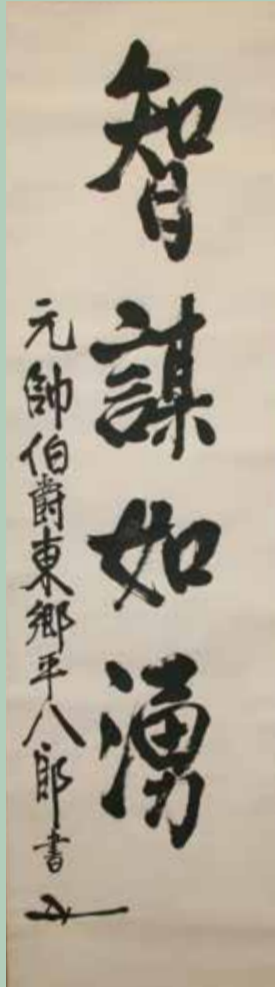 智謀如湧
元帥伯爵東郷平八郎書